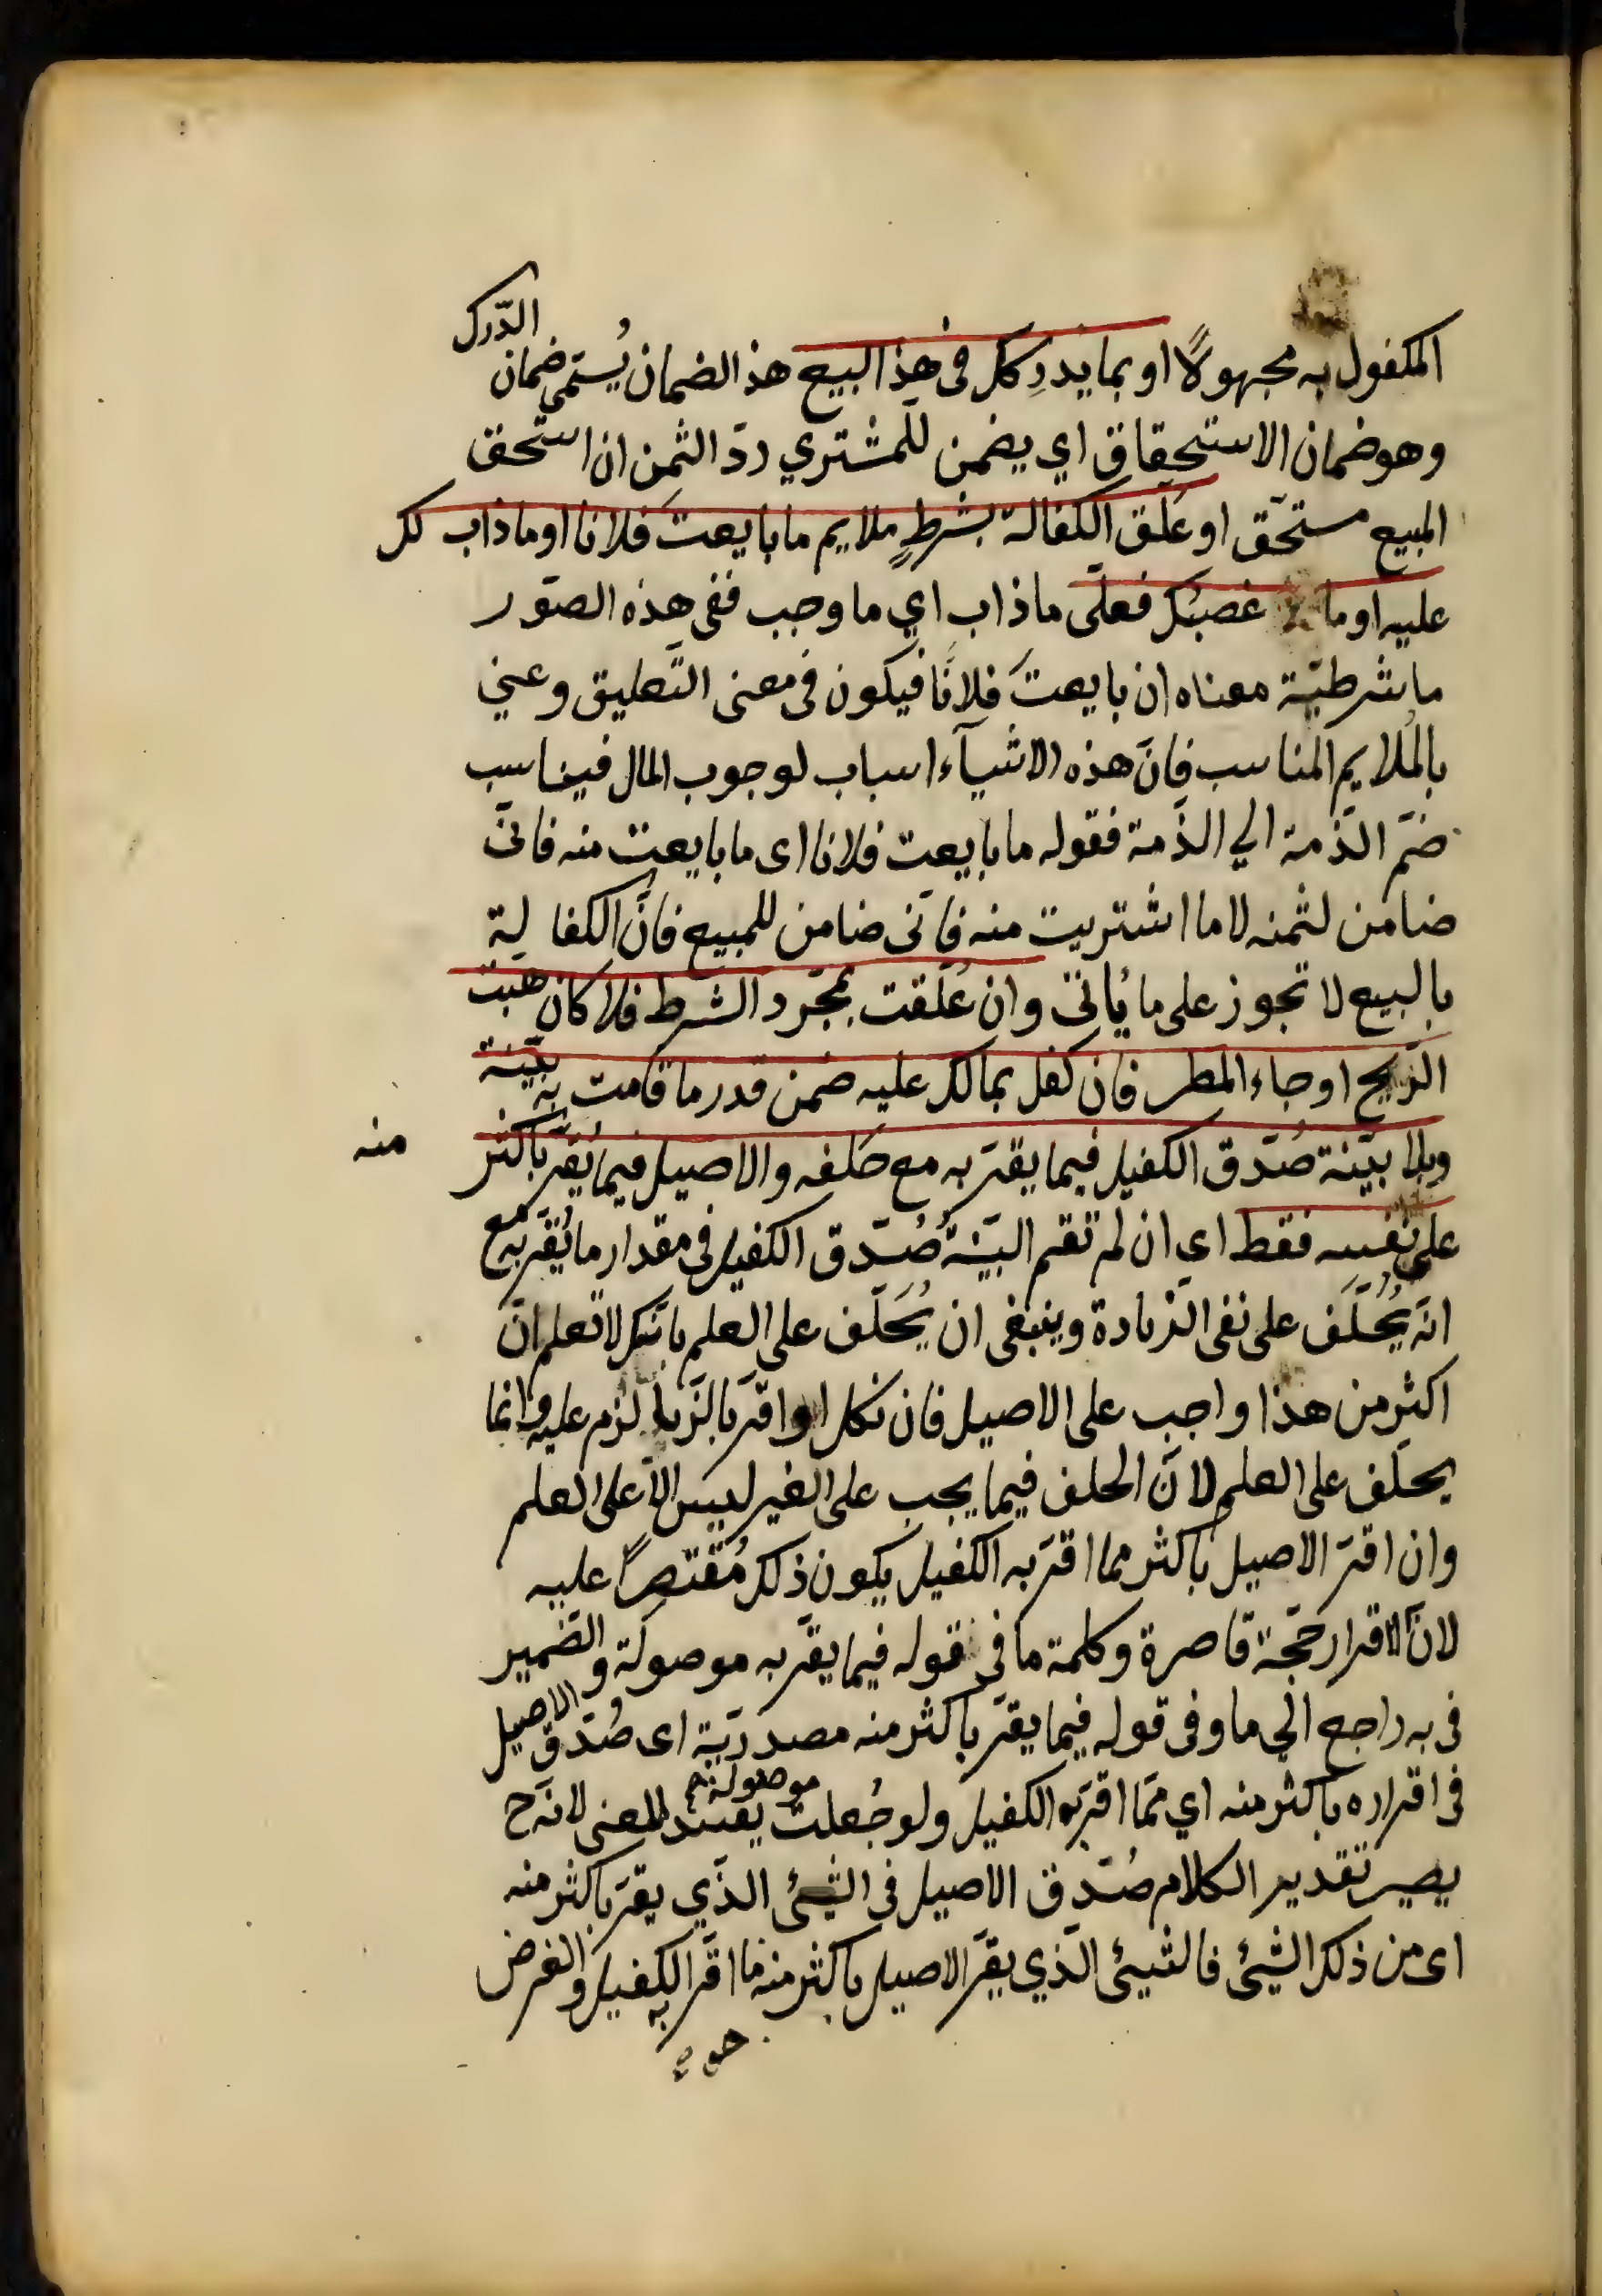 المكفول به مجهولاً او بما يدرِكك فى هذا البيع هذا الضمان يُسمّى ضمان الدّرك
وهو ضمان الاستحقاق اي يضمن للمشتري ردّ الثمن ان استحق
المبيع مستحّق او عَلّق الكفالة بشرطٍ ملايم ما بايعتَ فلانا او ما ذاب لك
عليه او ما غصبَك فعلّى ما ذاب اي ما وجب ففى هذه الصّور
ما شرطيّة معناه ان بايعتَ فلانًا فيكون فى معنى التّعليق وعني
بالمُلايم المناسب فانّ هذه الاشيآء اسباب لوجوب المال فيناسب
ضمّ الذّمة الي الذّمة فقوله ما بايعت فلانا اى ما بايعت منه فانّى
ضامن لثمنه لا ما اشتريت منه فانّى ضامن للمبيع فانّ الكفالة
بالمبيع لا تجوز على ما يُأتى وان عُلّقت بمجّرد الشرط فلا كان هبّت
الرّيح او جاء المطر فان كفل بما لك عليه ضمن قدر ما قامت به بيّنة
وبلا بيّنة صُدّق الكفيل فيما يقرّ به مع حَلفه والاصيل فيما يُقرّ باكثر منه
على نفسه فقط اى ان لم تقم البيّنةُ صُدّق الكفيل فى مقدار ما يُقرّ به مع
انّه يُحلَّف على نفى الزّيادة وينبغى ان يُحَلّف على العلم بانّك لا تعلم انّ
اكثر من هذا واجب على الاصيل فان نكل او اقرّ بالزّيا لزم عليه وانما
يحلّف على العلم لانّ الحلف فيما يجب على الغير ليس الاّ على العلم
وان اقرّ الاصيل باكثر مما اقرّ به الكفيل يكون ذلك مُقتصرًا عليه
لانّ الاقرار حجّة قاصرة وكلمة ما فى قوله فيما يقرّ به موصولة والضمير
فى به راجع الي ما وفى قوله فيما يقرّ باكثر منه مصدريّة اى صُدّق الاصيل
فى اقراره باكثر منه اي ممّا اقرّ به الكفيل ولو جُعلت موصولة يفسد المعنى لانّه ح
يصير تقدير الكلام صُدّق الاصيل فى الشئ الذّي يقرّ باكثر منه
اى من ذلك الشئ فالشئ الذّي يقرّ الاصيل باكثر منه ما اقرّ به الكفيل والغرض